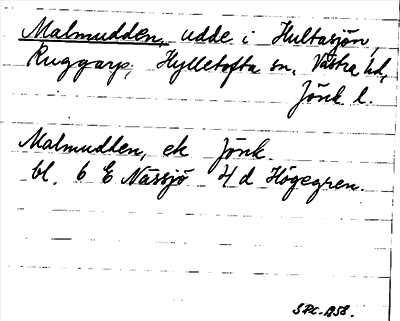 Malmudden, udde i Hultasjön,
Ruggarp, Hylletofta sn, Västra hd,
Jönk l.
Malmudden, ek Jönk.
bl. 6 E Nässjö 4 d Högegren.
1958.